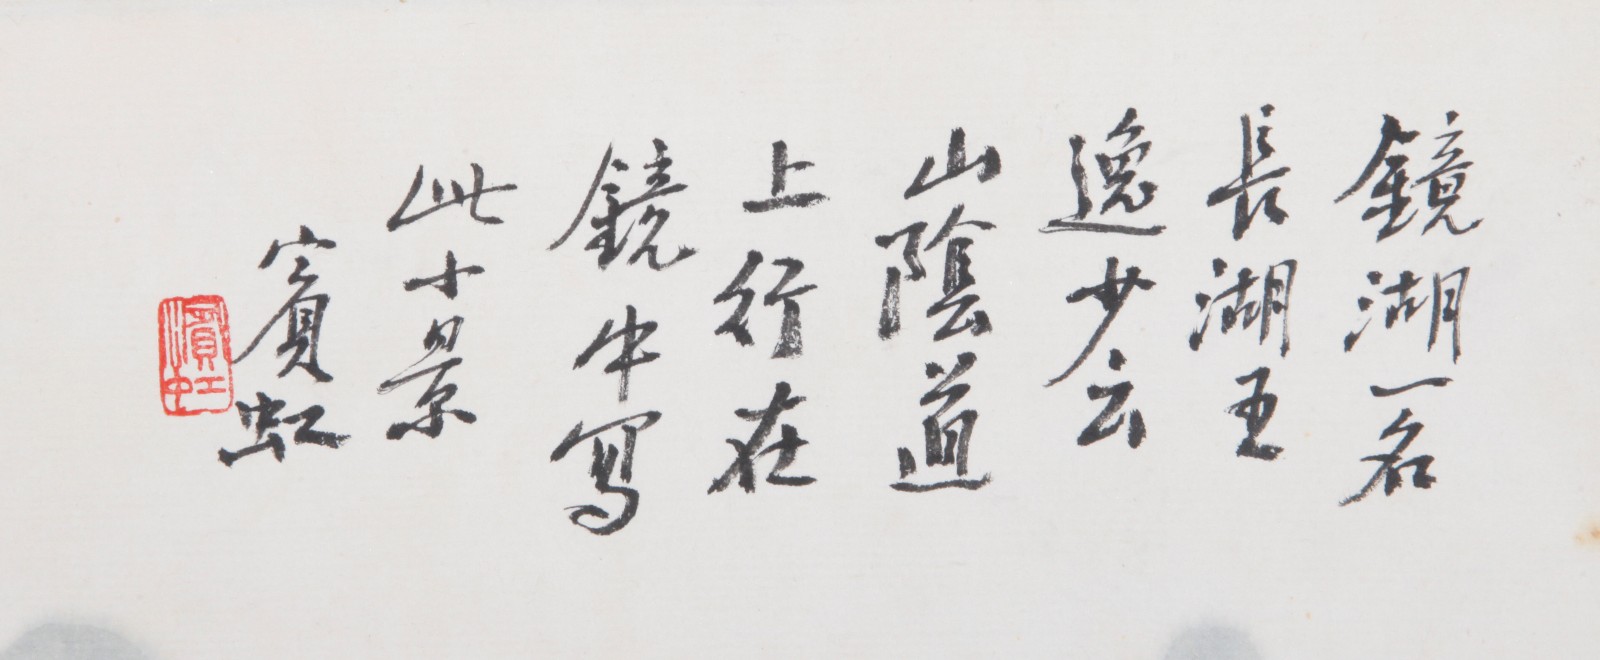 鏡湖一名
長湖王
逸少云
山陰道
上行在
鏡中寫
此十景
賓虹
濱虹